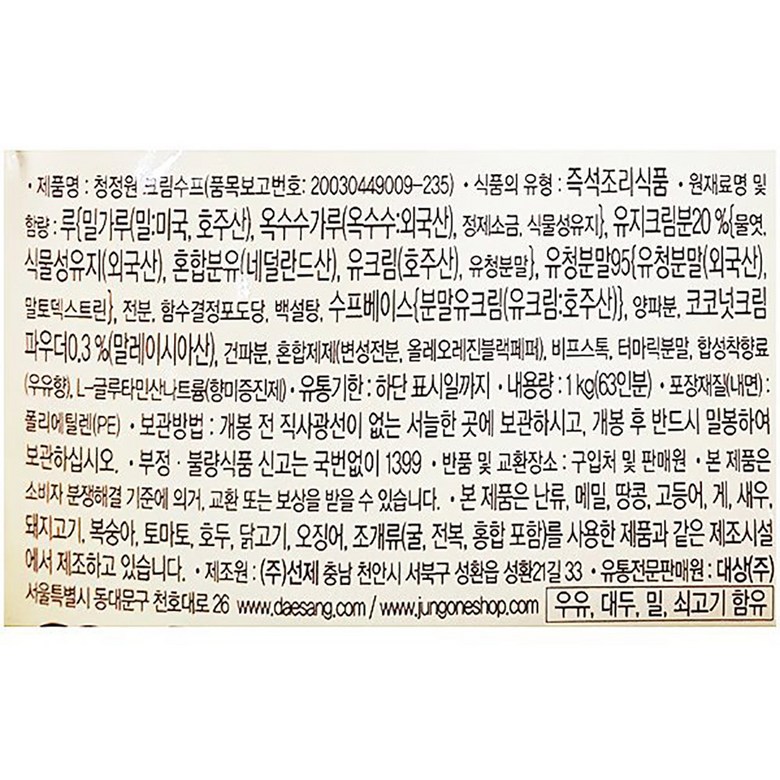 • 제품명 : 청정원 크림수프(품목보고번호: 20030449009-235) • 식품의 유형 : 즉석조리식품 • 원재료명 및
함량 : 루{밀가루(밀:미국, 호주산), 옥수수가루(옥수수:외국산), 정제소금, 식물성유지}, 유지크림분20 %{물엿,
식물성유지(외국산), 혼합분유(네덜란드산), 유크림(호주산), 유청분말}, 유청분말95{유청분말(외국산),
말토덱스트린}, 전분, 함수결정포도당, 백설탕, 수프베이스{분말유크림(유크림:호주산)}, 양파분, 코코넛크림
파우더0.3 %(말레이시아산), 건파분, 혼합제제(변성전분, 올레오레진블랙페퍼), 비프스톡, 터마릭분말, 합성착향료
(우유향), L-글루타민산나트륨(향미증진제) • 유통기한 : 하단 표시일까지 • 내용량 : 1 kg(63인분) • 포장재질(내면) :
폴리에틸렌(PE) • 보관방법 : 개봉 전 직사광선이 없는 서늘한 곳에 보관하시고, 개봉 후 반드시 밀봉하여
보관하십시오. • 부정 · 불량식품 신고는 국번없이 1399 • 반품 및 교환장소 : 구입처 및 판매원 • 본 제품은
소비자 분쟁해결 기준에 의거, 교환 또는 보상을 받을 수 있습니다. • 본 제품은 난류, 메밀, 땅콩, 고등어, 게, 새우,
돼지고기, 복숭아, 토마토, 호두, 닭고기, 오징어, 조개류(굴, 전복, 홍합 포함)를 사용한 제품과 같은 제조시설
에서 제조하고 있습니다. • 제조원 : (주)선제 충남 천안시 서북구 성환읍 성환21길 33 • 유통전문판매원 : 대상(주)
서울특별시 동대문구 천호대로 26 www.daesang.com / www.jungoneshop.com 우유, 대두, 밀, 쇠고기 함유